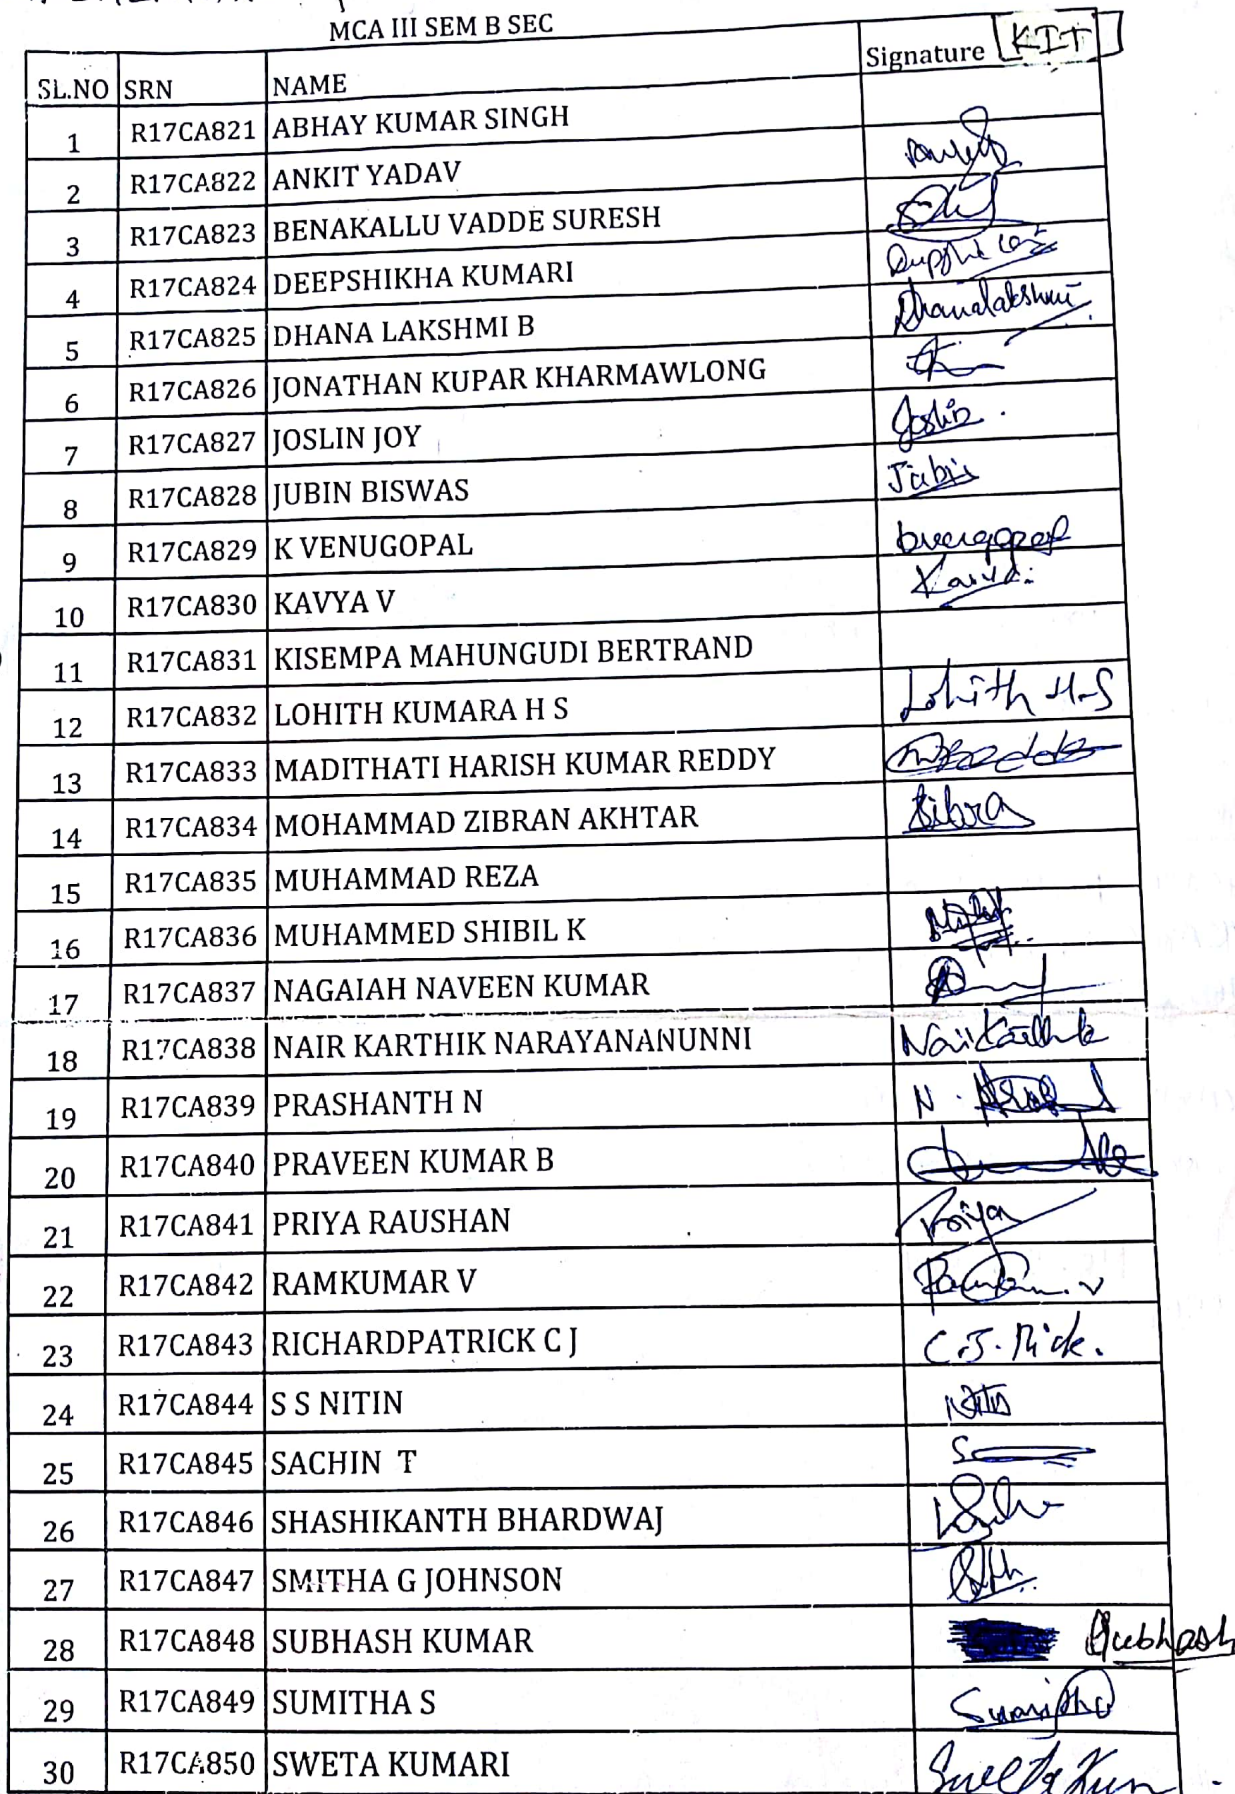 MCA III SEM B SEC
SL.NO SRN NAME Signature KIT
1 R17CA821 ABHAY KUMAR SINGH
2 R17CA822 ANKIT YADAV
3 R17CA823 BENAKALLU VADDE SURESH
4 R17CA824 DEEPSHIKHA KUMARI
5 R17CA825 DHANA LAKSHMI B Dhanalakshmi
6 R17CA826 JONATHAN KUPAR KHARMAWLONG
7 R17CA827 JOSLIN JOY Joslin
8 R17CA828 JUBIN BISWAS Jubin
9 R17CA829 K VENUGOPAL
10 R17CA830 KAVYA V
11 R17CA831 KISEMPA MAHUNGUDI BERTRAND
12 R17CA832 LOHITH KUMARA H S Lohith H.S
13 R17CA833 MADITHATI HARISH KUMAR REDDY
14 R17CA834 MOHAMMAD ZIBRAN AKHTAR
15 R17CA835 MUHAMMAD REZA
16 R17CA836 MUHAMMED SHIBIL K
17 R17CA837 NAGAIAH NAVEEN KUMAR
18 R17CA838 NAIR KARTHIK NARAYANANUNNI
19 R17CA839 PRASHANTH N N.
20 R17CA840 PRAVEEN KUMAR B
21 R17CA841 PRIYA RAUSHAN Priya
22 R17CA842 RAMKUMAR V
23 R17CA843 RICHARDPATRICK C J C.J. Rick.
24 R17CA844 S S NITIN Nitin
25 R17CA845 SACHIN T
26 R17CA846 SHASHIKANTH BHARDWAJ
27 R17CA847 SMITHA G JOHNSON
28 R17CA848 SUBHASH KUMAR Subhash
29 R17CA849 SUMITHA S Sumitha
30 R17CA850 SWETA KUMARI Sweta Kum